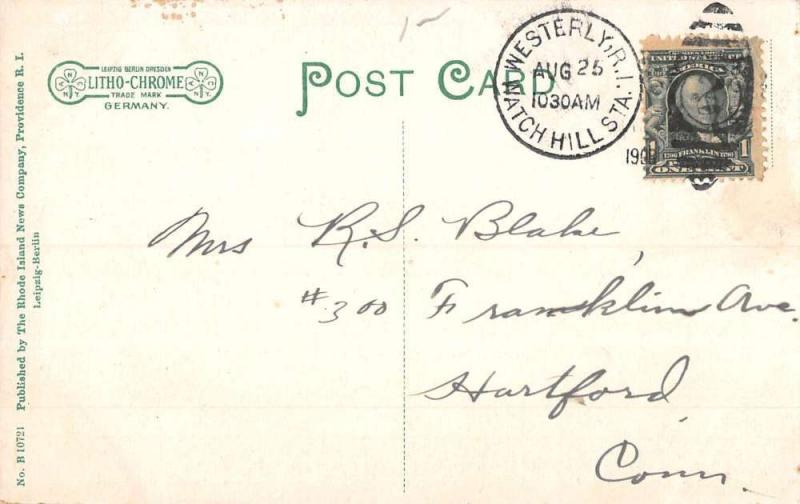 LEIPZIG BERLIN DRESDEN
LITHO-CHROME
TRADE MARK
GERMANY.
POST CARD
WESTERLY, R.I.
AUG 25
1030AM
WATCH HILL STA.
UNITED STATES
AMERICA
1 FRANKLIN 1
ONE CENT
Mrs R.S. Blake,
#300 Franklin Ave.
Hartford
Conn.
No. B 10721 Published by The Rhode Island News Company, Providence R. I.
Leipzig-Berlin